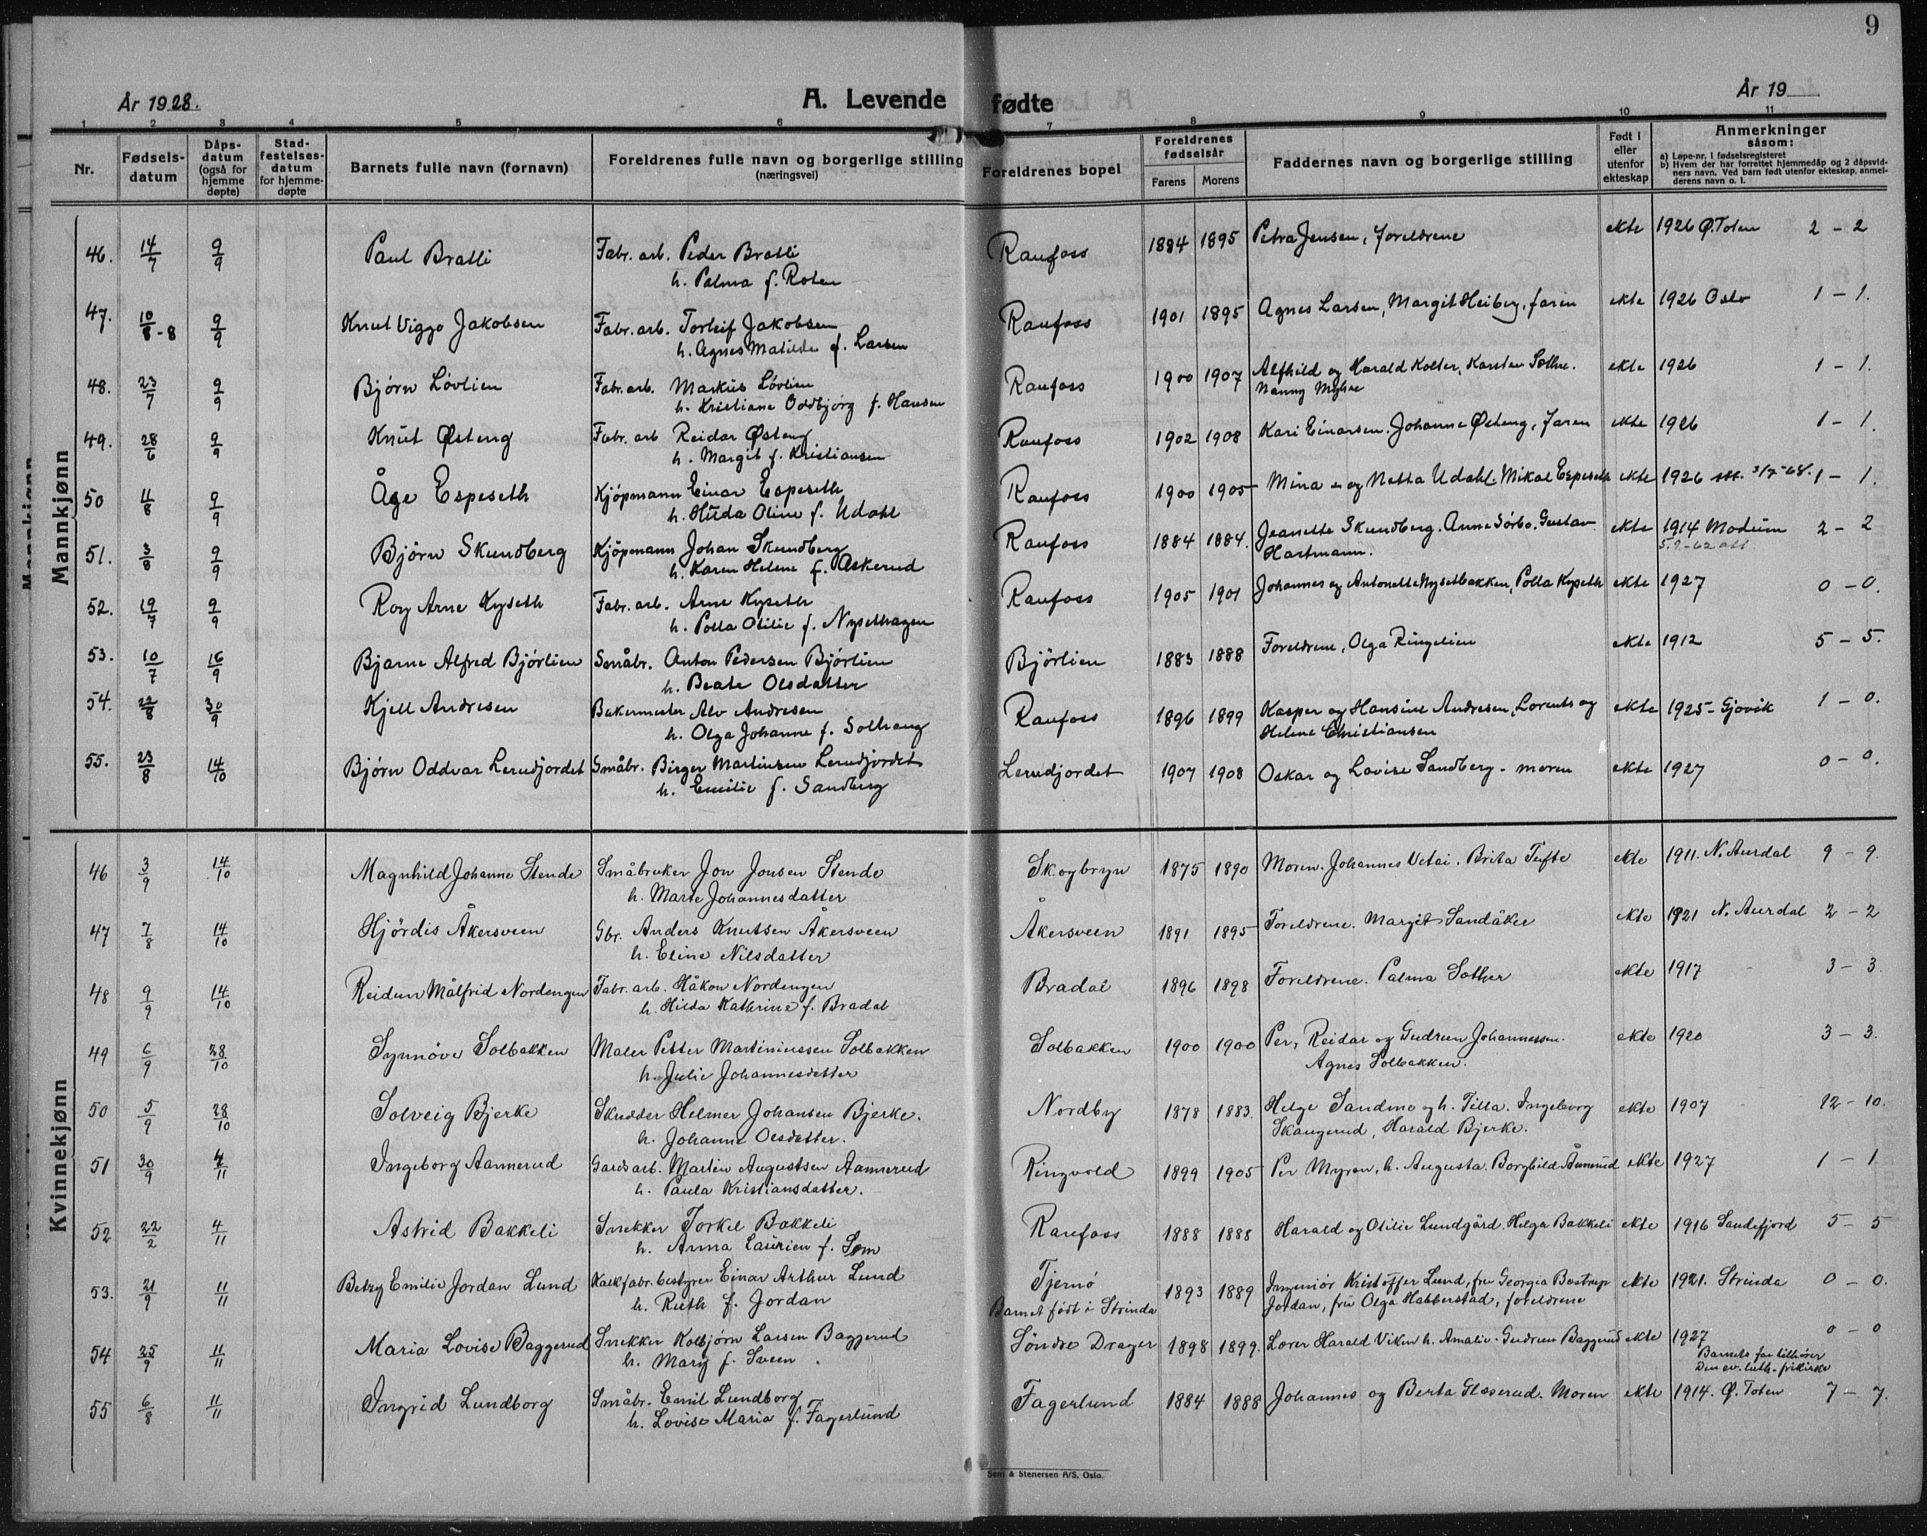 9
År 1928. A. Levende fødte År 19
1 2 3 4 5 6 7 8 9 10 11
Nr. Fødsels-datum Dåps-datum (også for hjemme døpte) Stad-festelses-datum for hjemme-døpte Barnets fulle navn (fornavn) Foreldrenes fulle navn og borgerlige stilling (næringsvei) Foreldrenes bopel Foreldrenes fødselsår Farens Morens Faddernes navn og borgerlige stilling Født i eller utenfor ekteskap Anmerkninger såsom: a) Løpe-nr. i fødselsregisteret b) Hvem der har forrettet hjemmedåp og 2 dåpsvidners navn. Ved barn født utenfor ekteskap, anmelderens navn o. l.
Mannkjønn
46. 14/7 9/9 Paul Bratli Fabr. arb. Peder Bratli Raufoss 1884 1895 Petra Jensen, foreldrene ekte 1926 Ø. Toten 2 - 2
h. Palma f. Roten
47. 10/8 - 8 9/9 Knut Viggo Jakobsen Fabr. arb. Torleif Jakobsen Raufoss 1901 1895 Agnes Larsen, Margit Heiberg, faren ekte 1926 Oslo 1 - 1.
h. Agnes Matilde f. Larsen
48. 23/7 9/9 Bjørn Løvlien Fabr. arb. Markus Løvlien Raufoss 1900 1907 Alfhild og Harald Kolter, Karsten Sethne. ekte 1926 1 - 1.
h. Kristiane Oddbjørg f. Hansen Nanny Myhre
49. 28/6 9/9 Knut Østeng Fabr. arb Reidar Østeng Raufoss 1902 1908 Kari Einarsen. Johanne Østeng, faren ekte 1926 1 - 1.
h. Margit f. Kristiansen
50 11/8 9/9 Åge Espeseth Kjøpmann Einar Espeseth Raufoss 1900 1905 Mina og Netta Udahl. Mikal Espeseth ekte 1926 att. 3/7-68. 1 - 1.
h. Hilda Oline f. Udahl
51. 3/8 9/9 Bjørn Skundberg Kjøpmann Johan Skundberg Raufoss 1884 1884. Jeanette Skundberg. Anne Sørbo. Gustav ekte 1914 Modum 2 - 2
h. Karen Helene f. Askerud Hartmann. 5.9-62 att
52. 19/7 9/9 Roy Arne Kyseth Fabr. arb. Arne Kyseth Raufoss 1905 1901 Johannes og Antonette Nysetbakken, Polla Kyseth ekte 1927 0 - 0.
h. Polla Otilie f. Nysethagen
53. 10/7 16/9 Bjarne Alfred Bjørlien Småbr. Anton Pedersen Bjørlien Bjørlien 1883 1888 Foreldrene, Olga Ringelien ekte 1912 5 - 5.
h. Beate Olsdatter
54. 22/8 30/9 Kjell Andresen Bakermester Alv Andresen Raufoss 1896 1899 Kasper og Hansine Andresen, Lorents og ekte 1925 - Gjøvik 1 - 0.
h. Olga Johanne f. Solhaug Helene Christiansen
55. 23/8 14/10 Bjørn Oddvar Lerudjordet Småbr. Birger Martinsen Lerudjordet Lerudjordet 1907 1908 Oskar og Lovise Sandberg - moren ekte 1927 0 - 0.
h. Emilie f. Sandberg
Kvinnekjønn
46 3/9 14/10 Magnhild Johanne Stende Småbruker Jon Jonsen Stende Skogbryn 1875 1890 Moren. Johannes Vetai. Brita Tufte ekte 1911. N. Aurdal 9 - 9.
h. Marte Johannesdatter
47 7/8 14/10 Hjørdis Åkersveen Gbr. Anders Knutsen Åkersveen Åkersveen 1891 1895 Foreldrene. Margit Sandåker ekte 1921 N. Aurdal 2 - 2
h. Eline Nilsdatter
48 9/9 14/10 Reidun Målfrid Nordengen Fabr. arb. Håkon Nordengen Bradal 1896 1898 Foreldrene. Palma Sother ekte 1917 3 - 3
h. Hilda Kathrine f. Bradal
49 6/9 28/10 Synnøve Solbakken Maler Petter Martiniussen Solbakken Solbakken 1900 1900 Per, Reidar og Gudrun Johannessen. ekte 1920 3 - 3.
h. Julie Johannesdatter Agnes Solbakken.
50 5/9 28/10 Solveig Bjerke Skredder Helmer Johansen Bjerke. Nordby 1878 1883. Helge Sandmo og h. Tilla. Ingeborg ekte 1907 12 - 10.
h. Johanne Olsdatter. Skaugerud, Harald Bjerke.
51 30/9 4/11 Ingeborg Aannerud Gardsarb. Martin Augustsen Aannerud Ringvold 1899 1905 Per Myren, h. Augusta. Borghild Ånnerud ekte 1927 1 - 1
h. Paula Kristiansdatter.
52 22/2 4/11 Astrid Bakkeli Snekker Torkel Bakkeli Raufoss 1888 1888 Harald og Otilie Lundgård. Helga Bakkeli ekte 1916 Sandefjord 5 - 5
h. Anna Laurien f. Sem
53. 21/9 11/11 Betzy Emilie Jordan Lund Kalkfabr. bestyrer Einar Arthur Lund Tjernø 1893 1889 Ingeniør Kristoffer Lund, fru Georgia Bostrup ekte 1921. Strinda 0 - 0.
h. Ruth f. Jordan Barnet født i Strinda Jordan, fru Olga Habberstad, foreldrene
54 25/9 11/11 Maria Lovise Baggerud Snekker Kolbjørn Larsen Baggerud Søndre Drager 1898 1899. Lærer Harald Viken h. Amalie. Gudrun Baggerud ekte 1927 0 - 0
h. Mary f. Sveen. Barnets far tilhører
Den ev. luth. frikirke
55 6/8 11/11 Ingrid Lundborg Småbr. Emil Lundborg Fagerlund 1884 1888 Johannes og Berta Glæserud. Moren ekte 1914. Ø. Toten 7 - 7.
h. Lovise Maria f. Fagerlund
Sem & Stenersen A/S, Oslo.